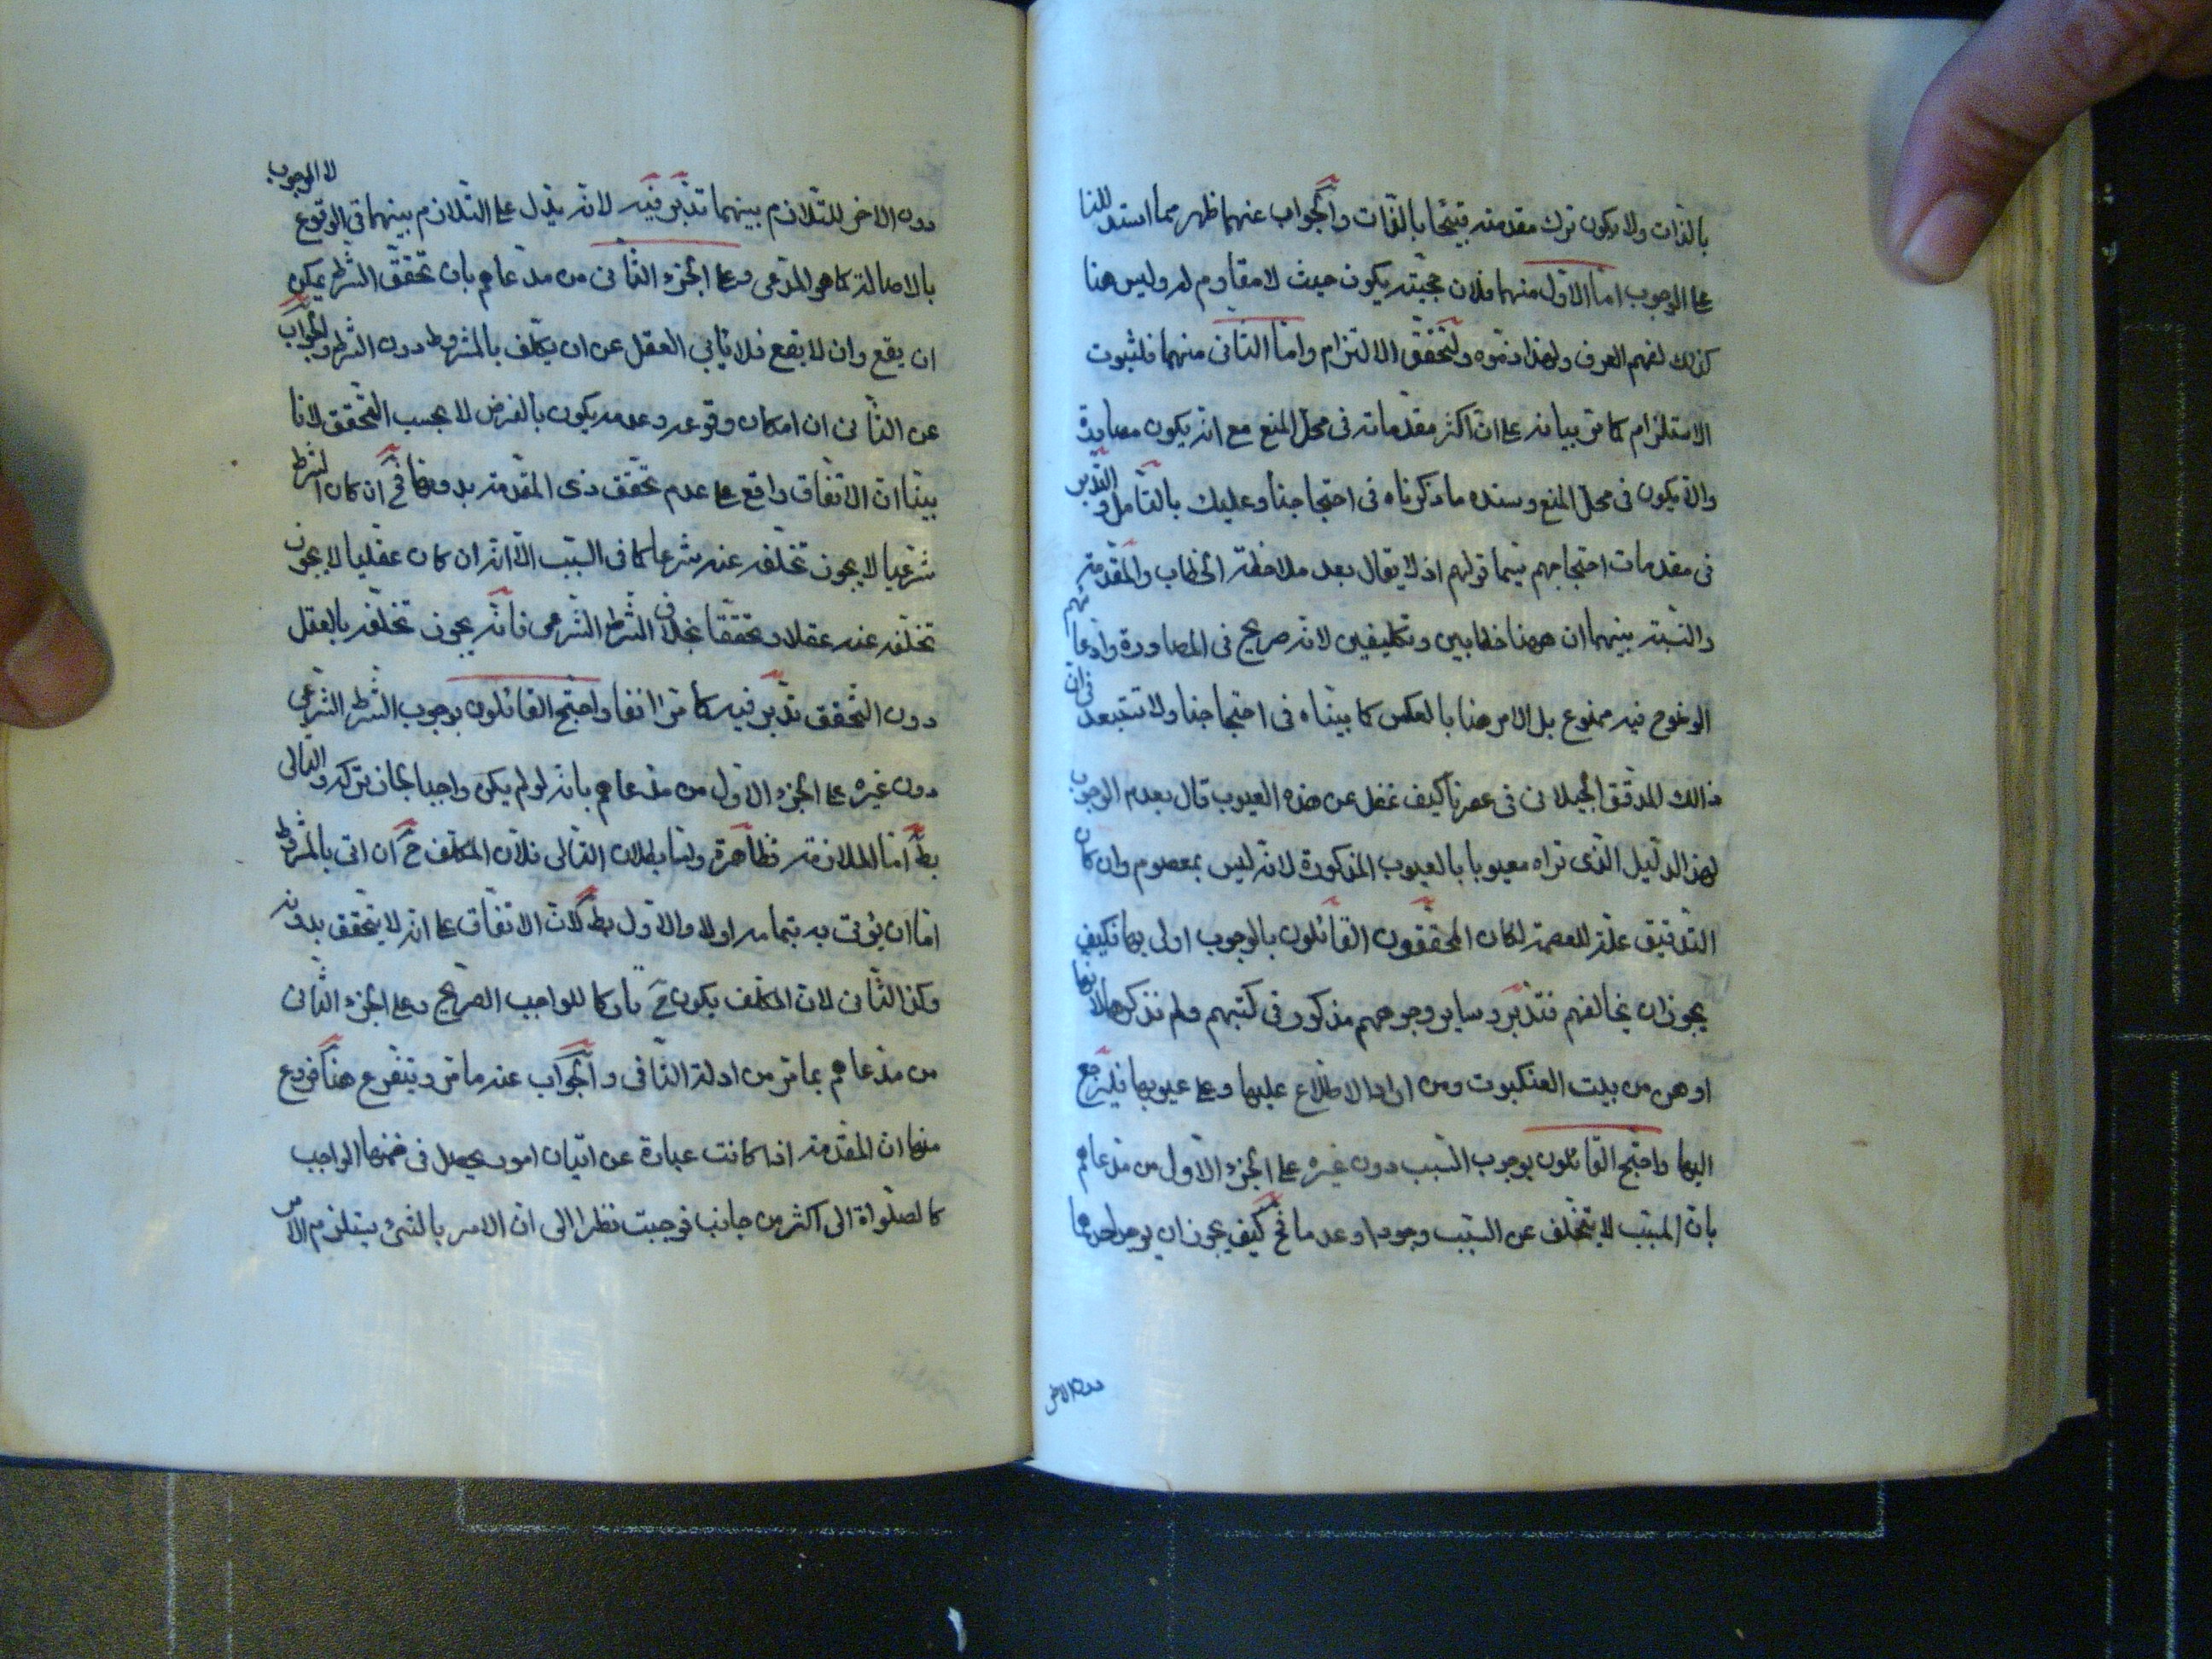 بالذات ولا يكون ترك مقدمته قبيحا بالذات والجواب عنهما ظهر مما استدللنا
على الوجوب اما الاول منهما فلان حجيته يكون حيث لا مقاوم له وليس هنا
كذلك لفهم العرف ولهذا ذموه ولتحقق الالتزام واما الثاني منهما فلثبوت
الاستلزام كما مر بيانه على ان اكثر مقدماته في محل المنع مع انه يكون مصادرة
والا يكون في محل المنع وسنده ما ذكرناه في احتجاجنا وعليك بالتأمل والتدبر
في مقدمات احتجاجهم سيما قولهم اذ لا يقال بعد ملاحظة الخطاب والمقدمة
والنسبة بينهما ان ههنا خطابين وتكليفين لانه صريح في المصادرة وادعائهم
الوضوح فيه ممنوع بل الامر هنا بالعكس كما بيناه في احتجاجنا ولا تستبعد
ذالك المدقق الجيلاني في عصرنا كيف غفل عن هذه العيوب قال بعدم الوجوب
لهذا الدليل الذي تراه معيوبا بالعيوب المذكورة لانه ليس بمعصوم وان كان
التدقيق علة للعصمة لكان المحققون القائلون بالوجوب اولى بها فكيف
يجوز ان يخالفهم فتدبر وساير وجوههم مذكور في كتبهم ولم نذكرها لانها
اوهن من بيت العنكبوت ومن اراد الاطلاع عليها وعلى عيوبها فليرجع
اليها واحتج القائلون بوجوب السبب دون غيره على الجزء الاول من مدعاهم
بان المسبب لا يتخلف عن السبب وجودا وعدما فح كيف يجوز ان يوجد احدهما
دون الاخر
لا الوجوب
دون الاخر للتلازم بينهما تدبر فيه لانه يدل على التلازم بينهما في الوقوع
بالاصالة كما هو المدعى وعلى الجزء الثاني من مدعاهم بان تحقق الشرط يمكن
ان يقع وان لا يقع فلا يابي العقل عن ان يكلف بالمشروط دون الشرط والجواب
عن الثاني ان امكان وقوعه وعدمه يكون بالفرض لا بحسب التحقق لانا
بينا ان الاتفاق واقع على عدم تحقق ذي المقدمة بدونها فح ان كان الشرط
شرعيا لا يجوز تخلفه عنه شرعا كما في السبب الا انه ان كان عقليا لا يجوز
تخلفه عنه عقلا وتحققا بخلاف الشرط الشرعي فانه يجوز تخلفه بالعقل
دون التحقق تدبر فيه كما مر انفا واحتج القائلون بوجوب الشرط الشرعي
دون غيره على الجزء الاول من مدعاهم بانه لو لم يكن واجبا لجاز تركه والتالي
بط اما الملازمة فظاهرة واما بطلان التالي فلان المكلف ح ان اتى بالمشروط
اما ان يؤتى به بتمامه اولا والاول بط لان الاتفاق على انه لا يتحقق بدونه
وكذا الثاني لان المكلف يكون ح تاركا للواجب الصريح وعلى الجزء الثاني
من مدعاهم بما مر من ادلة النافي والجواب عنه ما مر ويتفرع هنا فروع
منها ان المقدمة اذا كانت عبارة عن اتيان امور يحصل في ضمنها الواجب
كالصلواة الى اكثر من جانب فوجبت نظرا الى ان الامر بالشئ يستلزم الامر